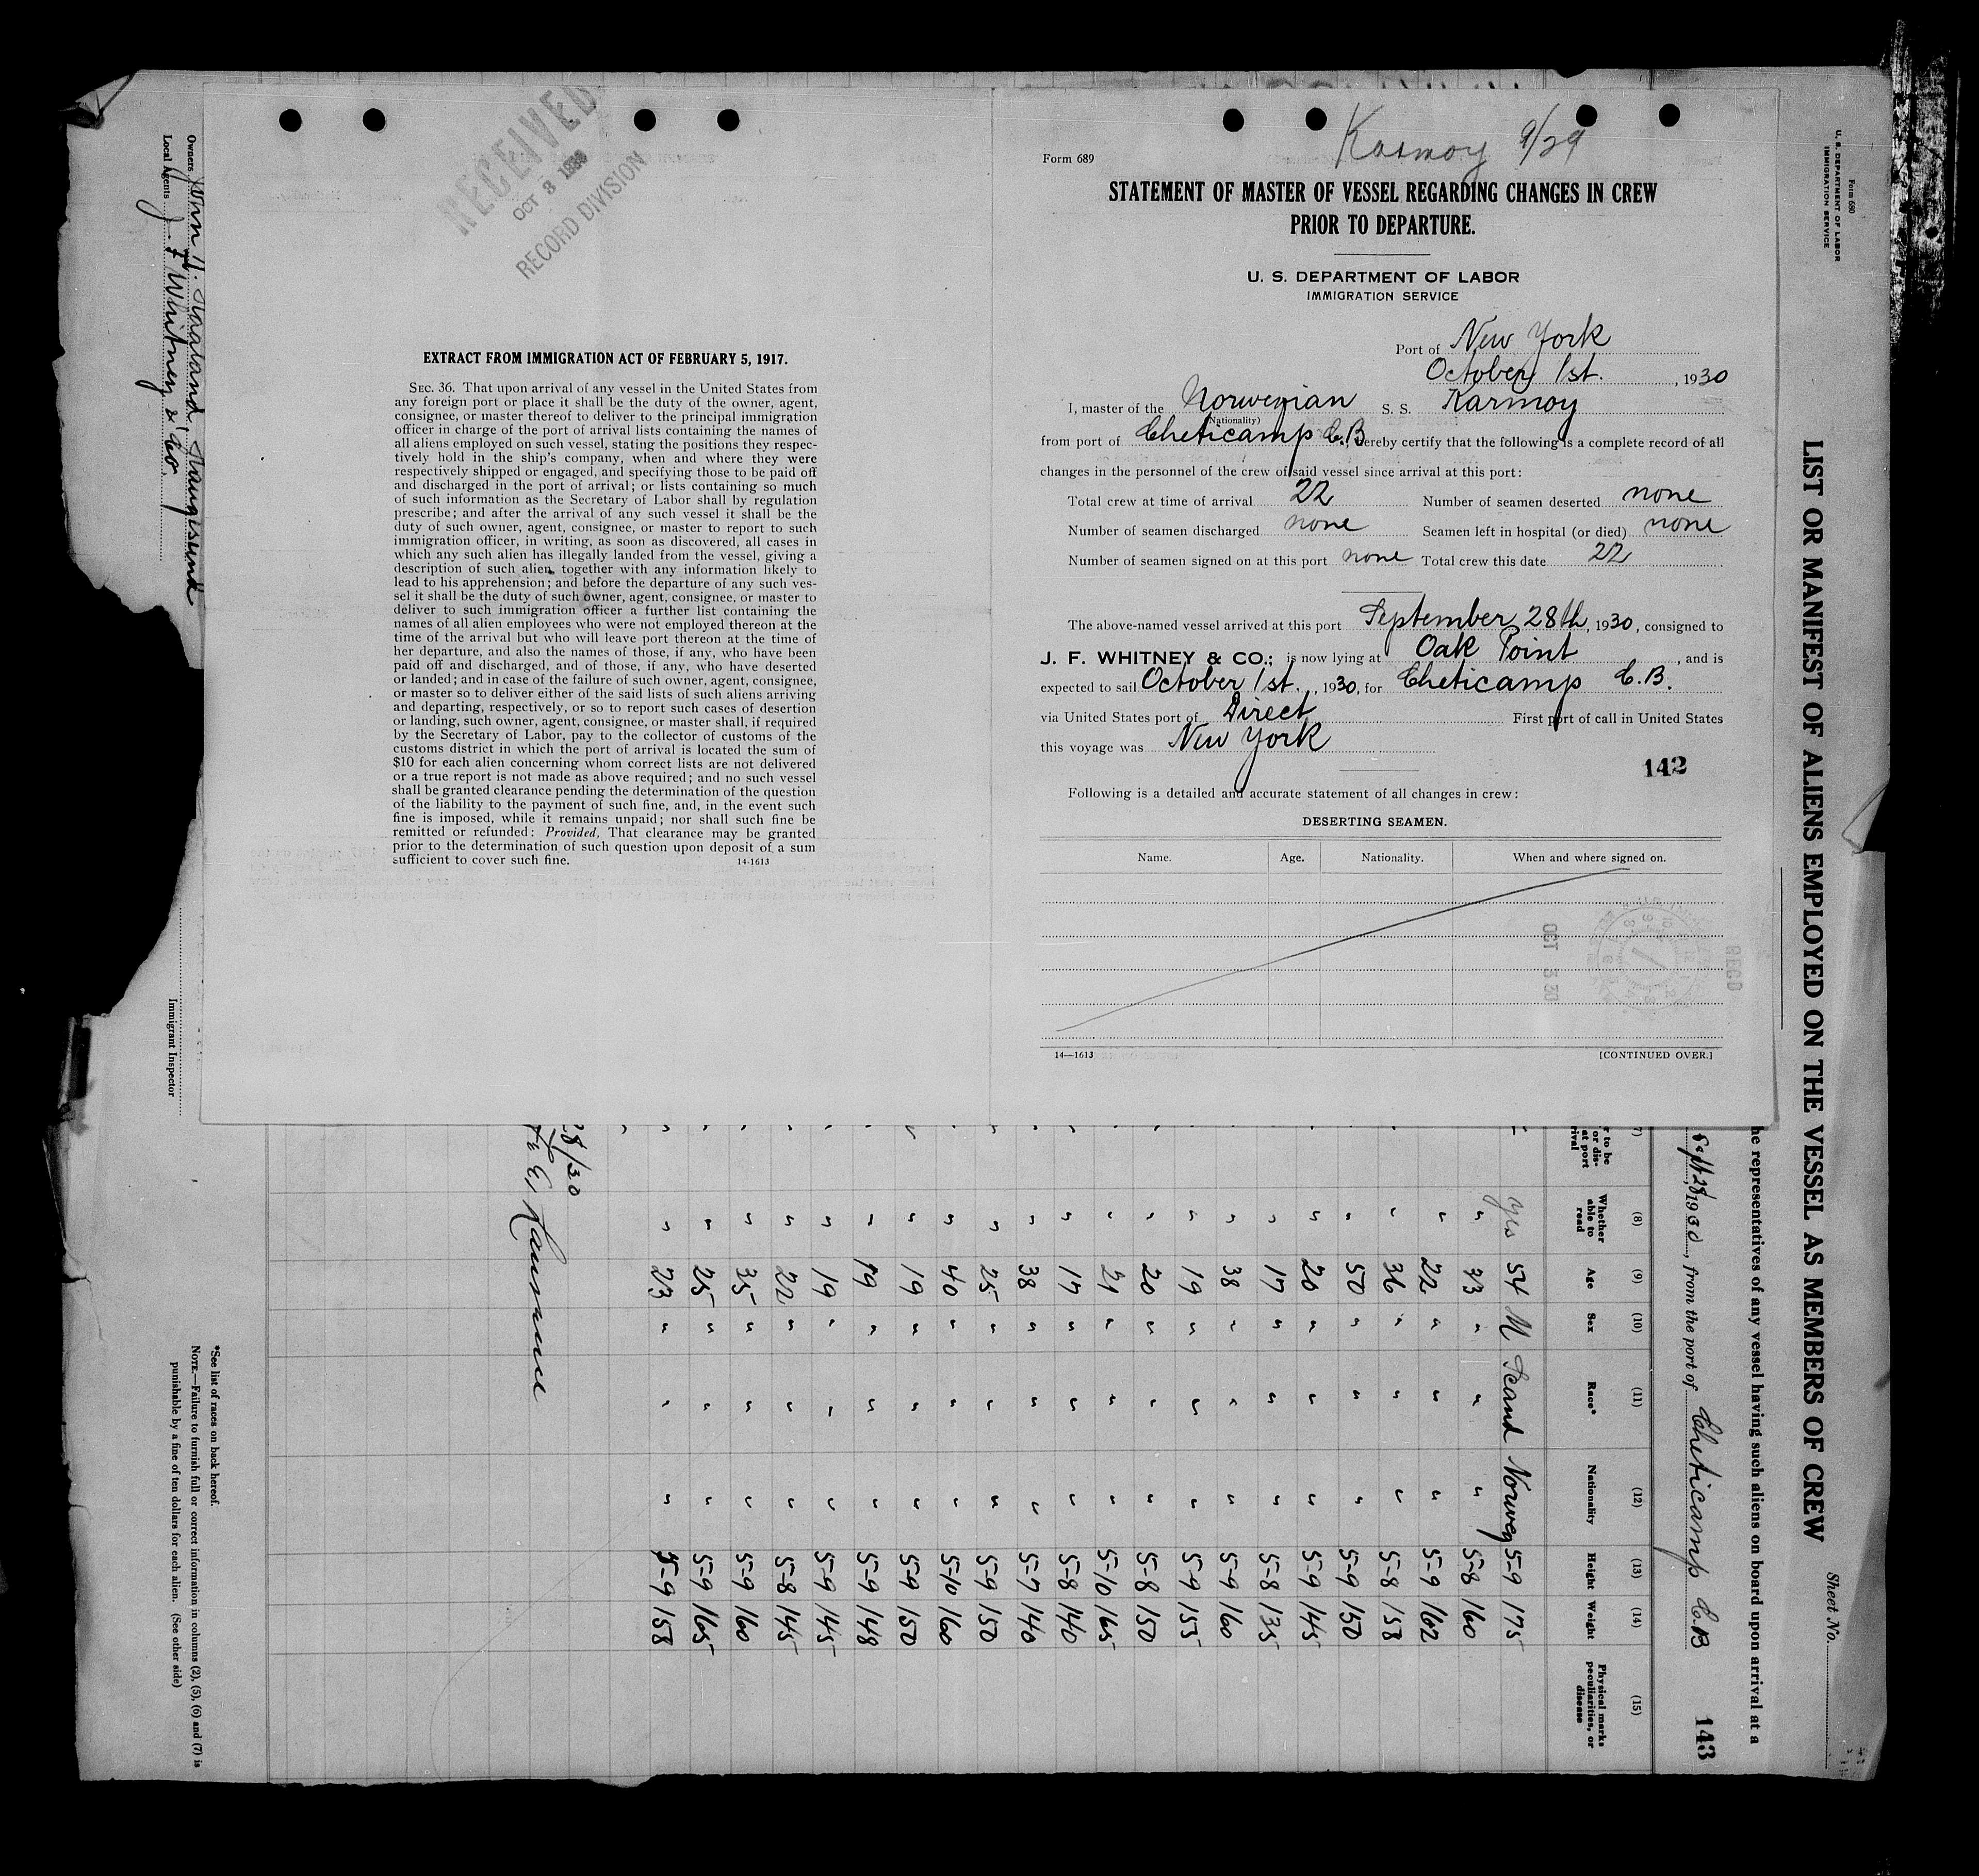 RECEIVED
OCT 3 1930
RECORD DIVISION
EXTRACT FROM IMMIGRATION ACT OF FEBRUARY 5, 1917.
SEC. 36. That upon arrival of any vessel in the United States from
any foreign port or place it shall be the duty of the owner, agent,
consignee, or master thereof to deliver to the principal immigration
officer in charge of the port of arrival lists containing the names of
all aliens employed on such vessel, stating the positions they respec-
tively hold in the ship's company, when and where they were
respectively shipped or engaged, and specifying those to be paid off
and discharged in the port of arrival; or lists containing so much
of such information as the Secretary of Labor shall by regulation
prescribe; and after the arrival of any such vessel it shall be the
duty of such owner, agent, consignee, or master to report to such
immigration officer, in writing, as soon as discovered, all cases in
which any such alien has illegally landed from the vessel, giving a
description of such alien, together with any information likely to
lead to his apprehension; and before the departure of any such ves-
sel it shall be the duty of such owner, agent, consignee, or master to
deliver to such immigration officer a further list containing the
names of all alien employees who were not employed thereon at the
time of the arrival but who will leave port thereon at the time of
her departure, and also the names of those, if any, who have been
paid off and discharged, and of those, if any, who have deserted
or landed; and in case of the failure of such owner, agent, consignee,
or master so to deliver either of the said lists of such aliens arriving
and departing, respectively, or so to report such cases of desertion
or landing, such owner, agent, consignee, or master shall, if required
by the Secretary of Labor, pay to the collector of customs of the
customs district in which the port of arrival is located the sum of
$10 for each alien concerning whom correct lists are not delivered
or a true report is not made as above required; and no such vessel
shall be granted clearance pending the determination of the question
of the liability to the payment of such fine, and, in the event such
fine is imposed, while it remains unpaid; nor shall such fine be
remitted or refunded: Provided, That clearance may be granted
prior to the determination of such question upon deposit of a sum
sufficient to cover such fine. 14-1613
Karmoy 9/29
Form 689
STATEMENT OF MASTER OF VESSEL REGARDING CHANGES IN CREW
PRIOR TO DEPARTURE.
U. S. DEPARTMENT OF LABOR
IMMIGRATION SERVICE
Port of New York
October 1st. , 1930
I, master of the Norwegian S. S. Karmoy
(Nationality)
from port of Cheticamp C.B, hereby certify that the following is a complete record of all
changes in the personnel of the crew of said vessel since arrival at this port:
Total crew at time of arrival 22 Number of seamen deserted none
Number of seamen discharged none Seamen left in hospital (or died) none
Number of seamen signed on at this port none Total crew this date 22
The above-named vessel arrived at this port September 28th, 1930, consigned to
J. F. WHITNEY & CO.; is now lying at Oak Point , and is
expected to sail October 1st. , 1930, for Cheticamp C.B.
via United States port of Direct First port of call in United States
this voyage was New York
142
Following is a detailed and accurate statement of all changes in crew:
DESERTING SEAMEN.
Name. Age. Nationality. When and where signed on.
OCT 3 30
RECD
14—1613 [CONTINUED OVER.]
Form 680
U. S. DEPARTMENT OF LABOR
IMMIGRATION SERVICE
LIST OR MANIFEST OF ALIENS EMPLOYED ON THE VESSEL AS MEMBERS OF CREW
Sheet No.
he representatives of any vessel having such aliens on board upon arrival at a
Sept 28, 1930, from the port of Cheticamp C.B
143
(8) (9) (10) (11) (12) (13) (14) (15)
Whether able to read Age Sex Race* Nationality Height Weight Physical marks, peculiarities, or disease
yes 54 M Scand Norweg 5-9 175
" 33 " " " 5-8 160
" 22 " " " 5-9 162
" 36 " " " 5-8 158
" 50 " " " 5-9 150
" 20 " " " 5-9 145
" 17 " " " 5-8 135
" 38 " " " 5-9 160
" 19 " " " 5-9 155
" 20 " " " 5-8 150
" 21 " " " 5-10 165
" 17 " " " 5-8 140
" 38 " " " 5-7 140
" 25 " " " 5-9 150
" 40 " " " 5-10 160
" 19 " " " 5-9 150
" 19 " " " 5-9 148
" 19 " " " 5-9 145
" 22 " " " 5-8 145
" 35 " " " 5-9 160
" 25 " " " 5-9 165
" 23 " " " 5-9 158
28/30
*See list of races on back hereof.
NOTE.—Failure to furnish full or correct information in columns (2), (5), (6) and (7) is
punishable by a fine of ten dollars for each alien. (See other side)
Owners
Haugesund
Local Agents J. F Whitney & Co.
Immigrant Inspector